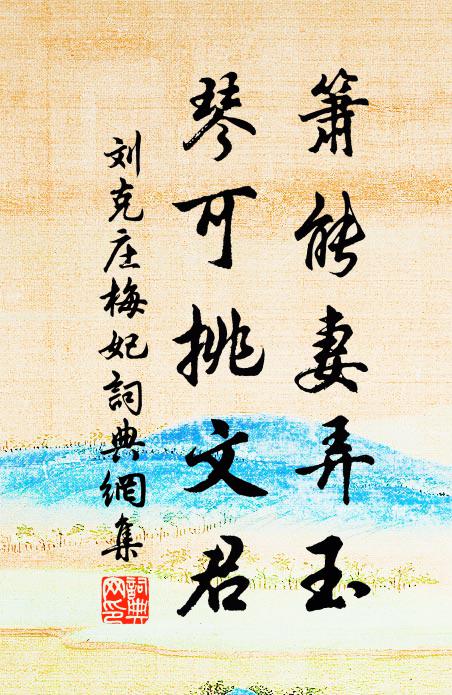 箫能妻弄玉
琴可挑文君
刘克庄梅妃詞典網集
詞典
网印